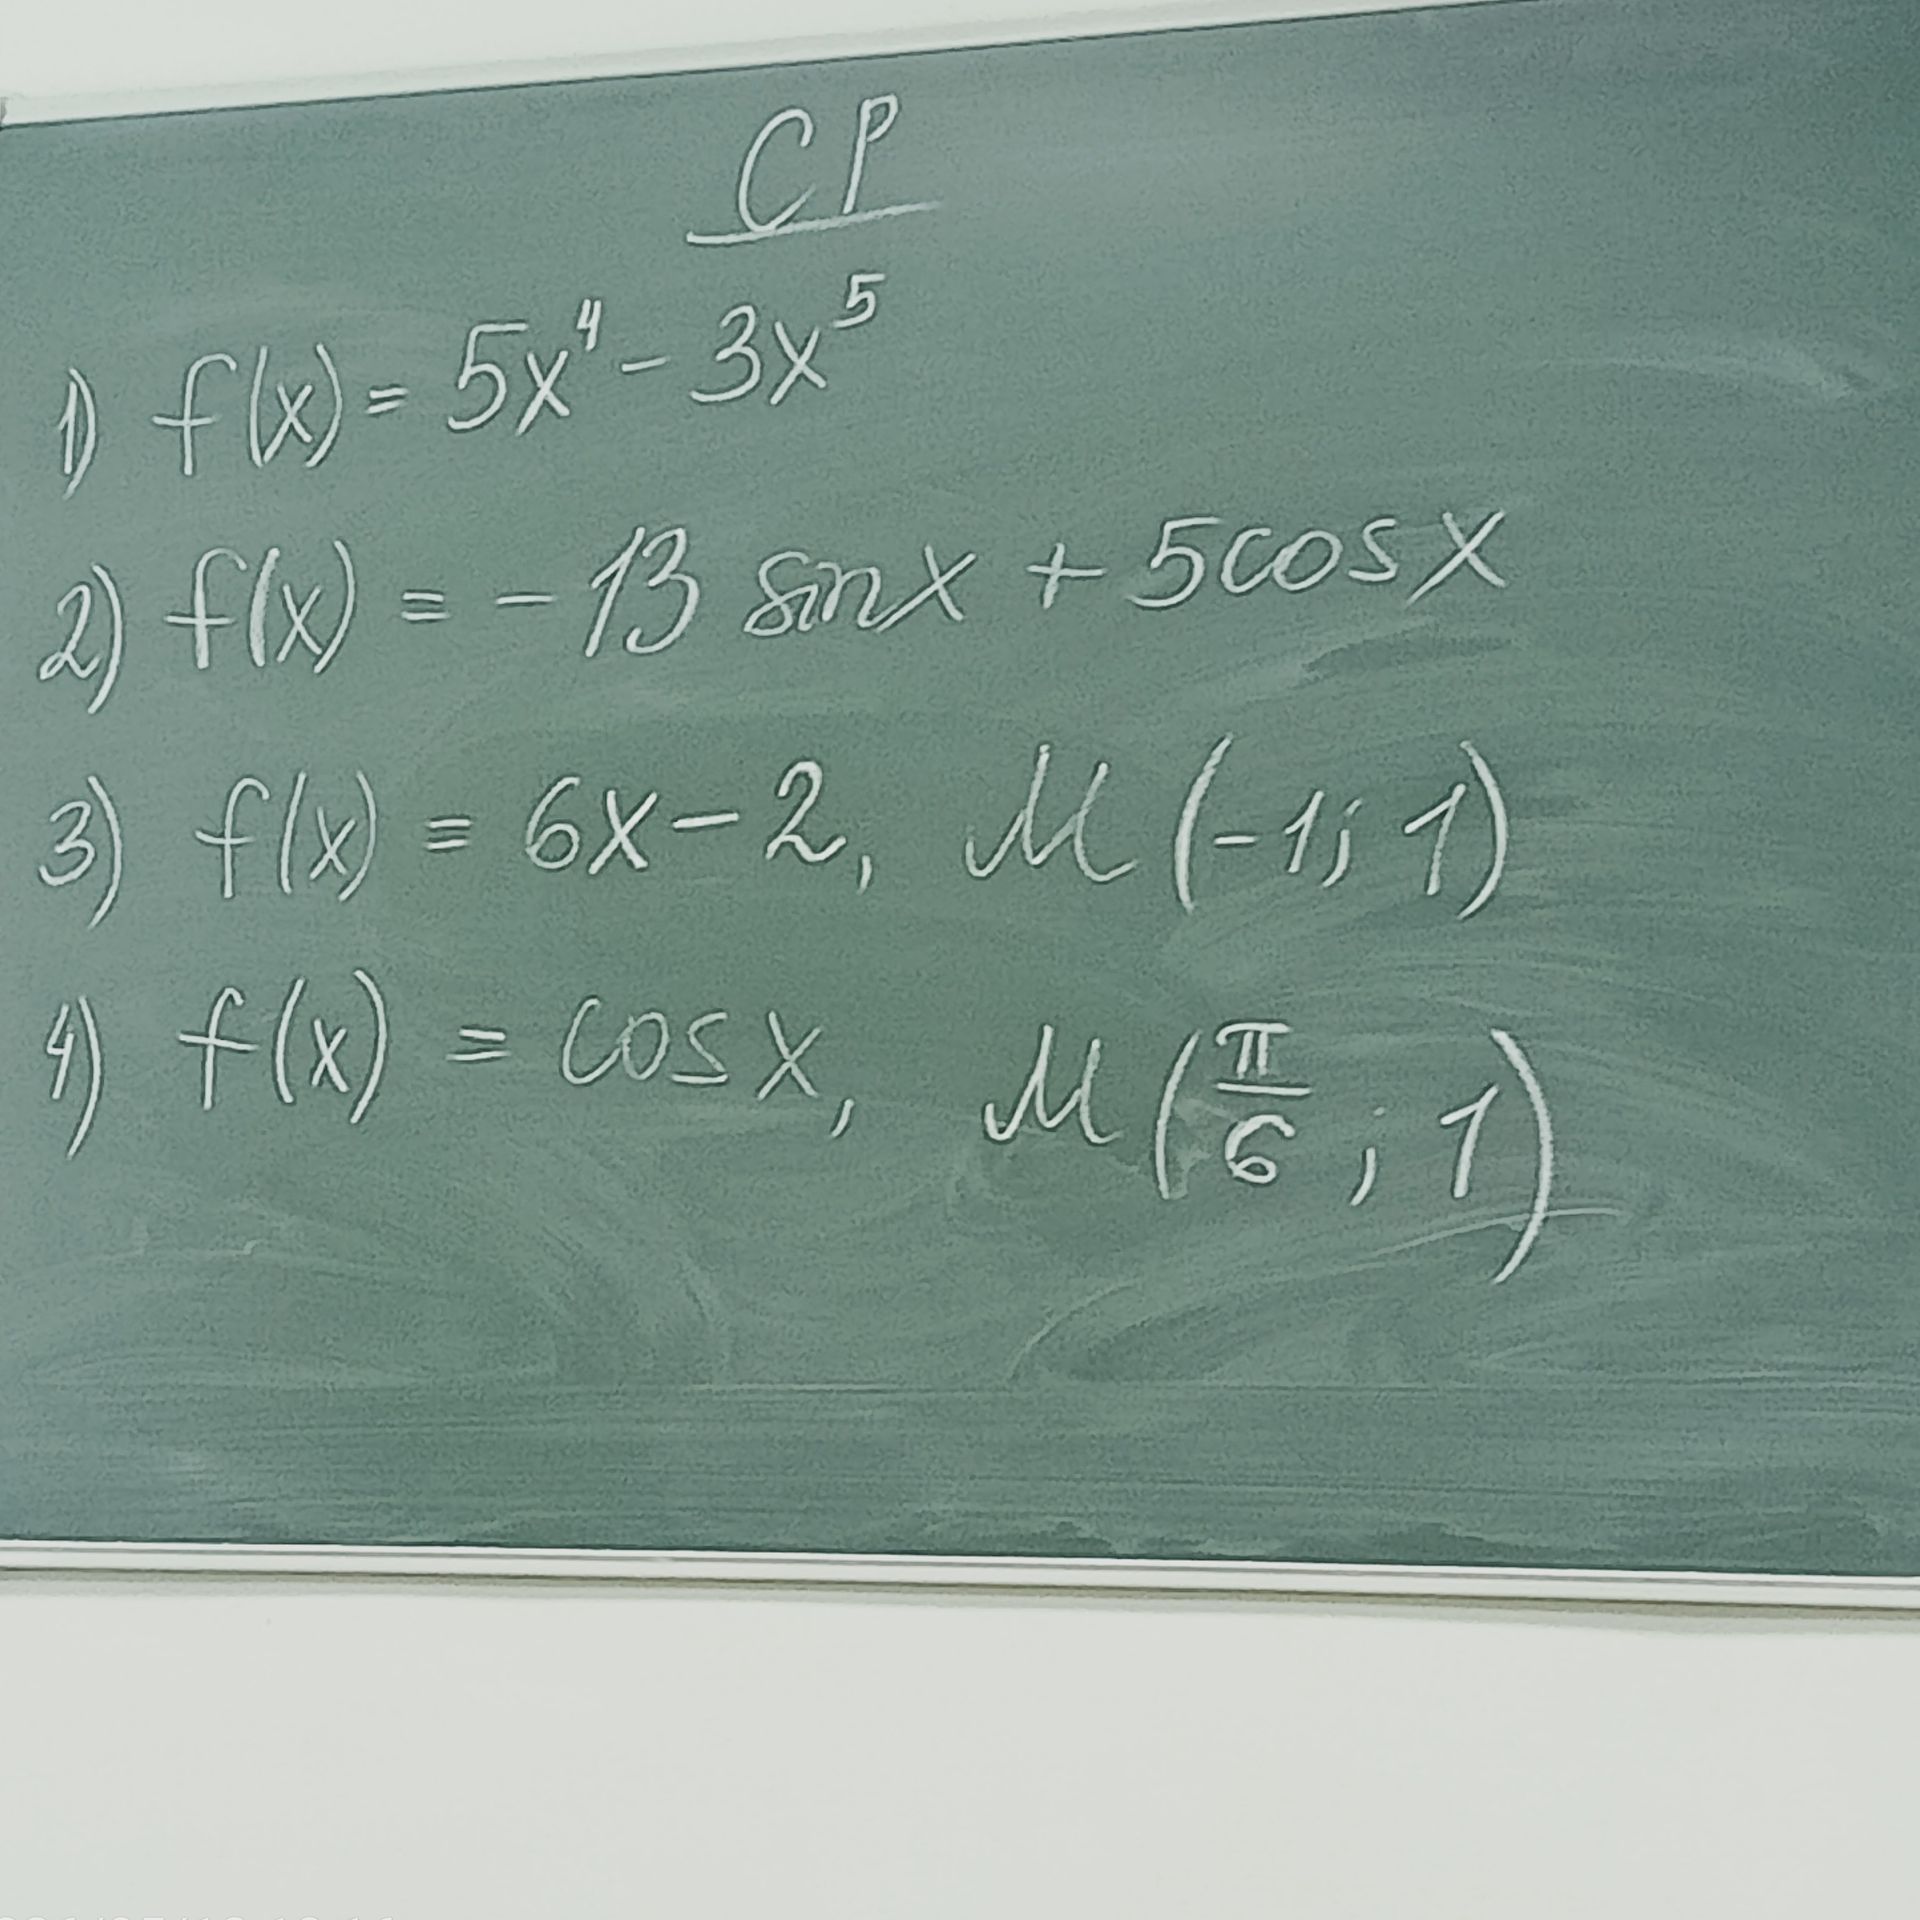 СР
1) f(x) = 5x⁴ - 3x⁵
2) f(x) = - 13 sinx + 5cosx
3) f(x) = 6x - 2, M (-1; 1)
4) f(x) = cosx, M (π/6; 1)